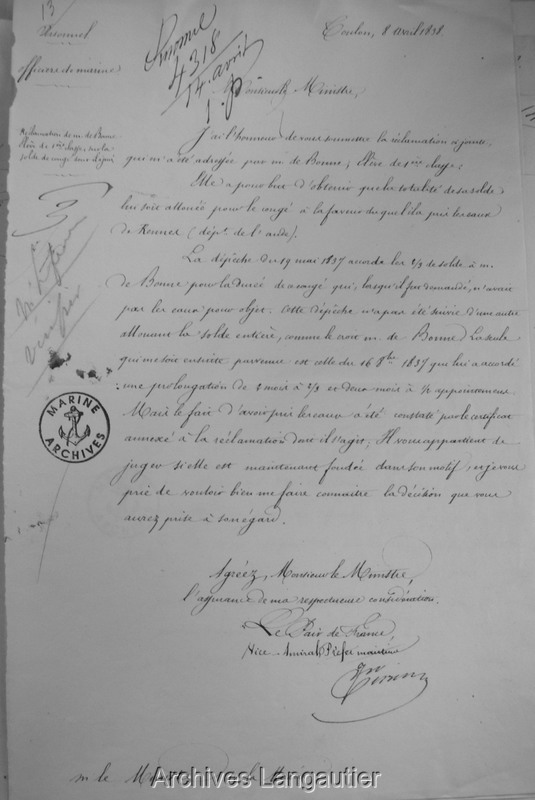 13
Personnel
officiers de marine
Toulon, 8 avril 1838.
4318
14 avril
Monsieur le Ministre,
Réclamation de m. de Bonne
Elève de 1ère classe, sur la
solde de congé
J'ai l'honneur de vous soumettre la réclamation ci-jointe,
qui m'a été adressée par m. de Bonne, Elève de 1ère classe.
Elle a pour but d'obtenir que la totalité de sa solde
lui soit allouée pour le congé à la faveur duquel il a pris les eaux
de Rennes (dépt. de l'aude).
La dépêche du 19 mai 1837 accorda les 2/3 de solde à m.
de Bonne pour la durée du congé qui, lorsqu'il fut demandé, n'avait
pas les eaux pour objet. Cette dépêche n'a pas été suivie d'une autre
allouant la solde entière, comme le croit m. de Bonne. La seule
qui me soit ensuite parvenue est celle du 16 8bre 1837 qui lui a accordé
une prolongation de 2 mois à 2/3 et deux mois à 1/2 appointemens.
Mais le fait d'avoir pris les eaux a été constaté par le certificat
annexé à la réclamation dont il s'agit. Il vous appartient de
juger si elle est maintenant fondée dans son motif, et je vous
prie de vouloir bien me faire connaître la décision que vous
aurez prise à son égard.
MARINE
ARCHIVES
Agréez, Monsieur le Ministre,
l'assurance de ma respectueuse considération.
Le Pair de France,
Vice-Amiral, Préfet maritime
m. le Ministre de la Marine
Archives Langautier